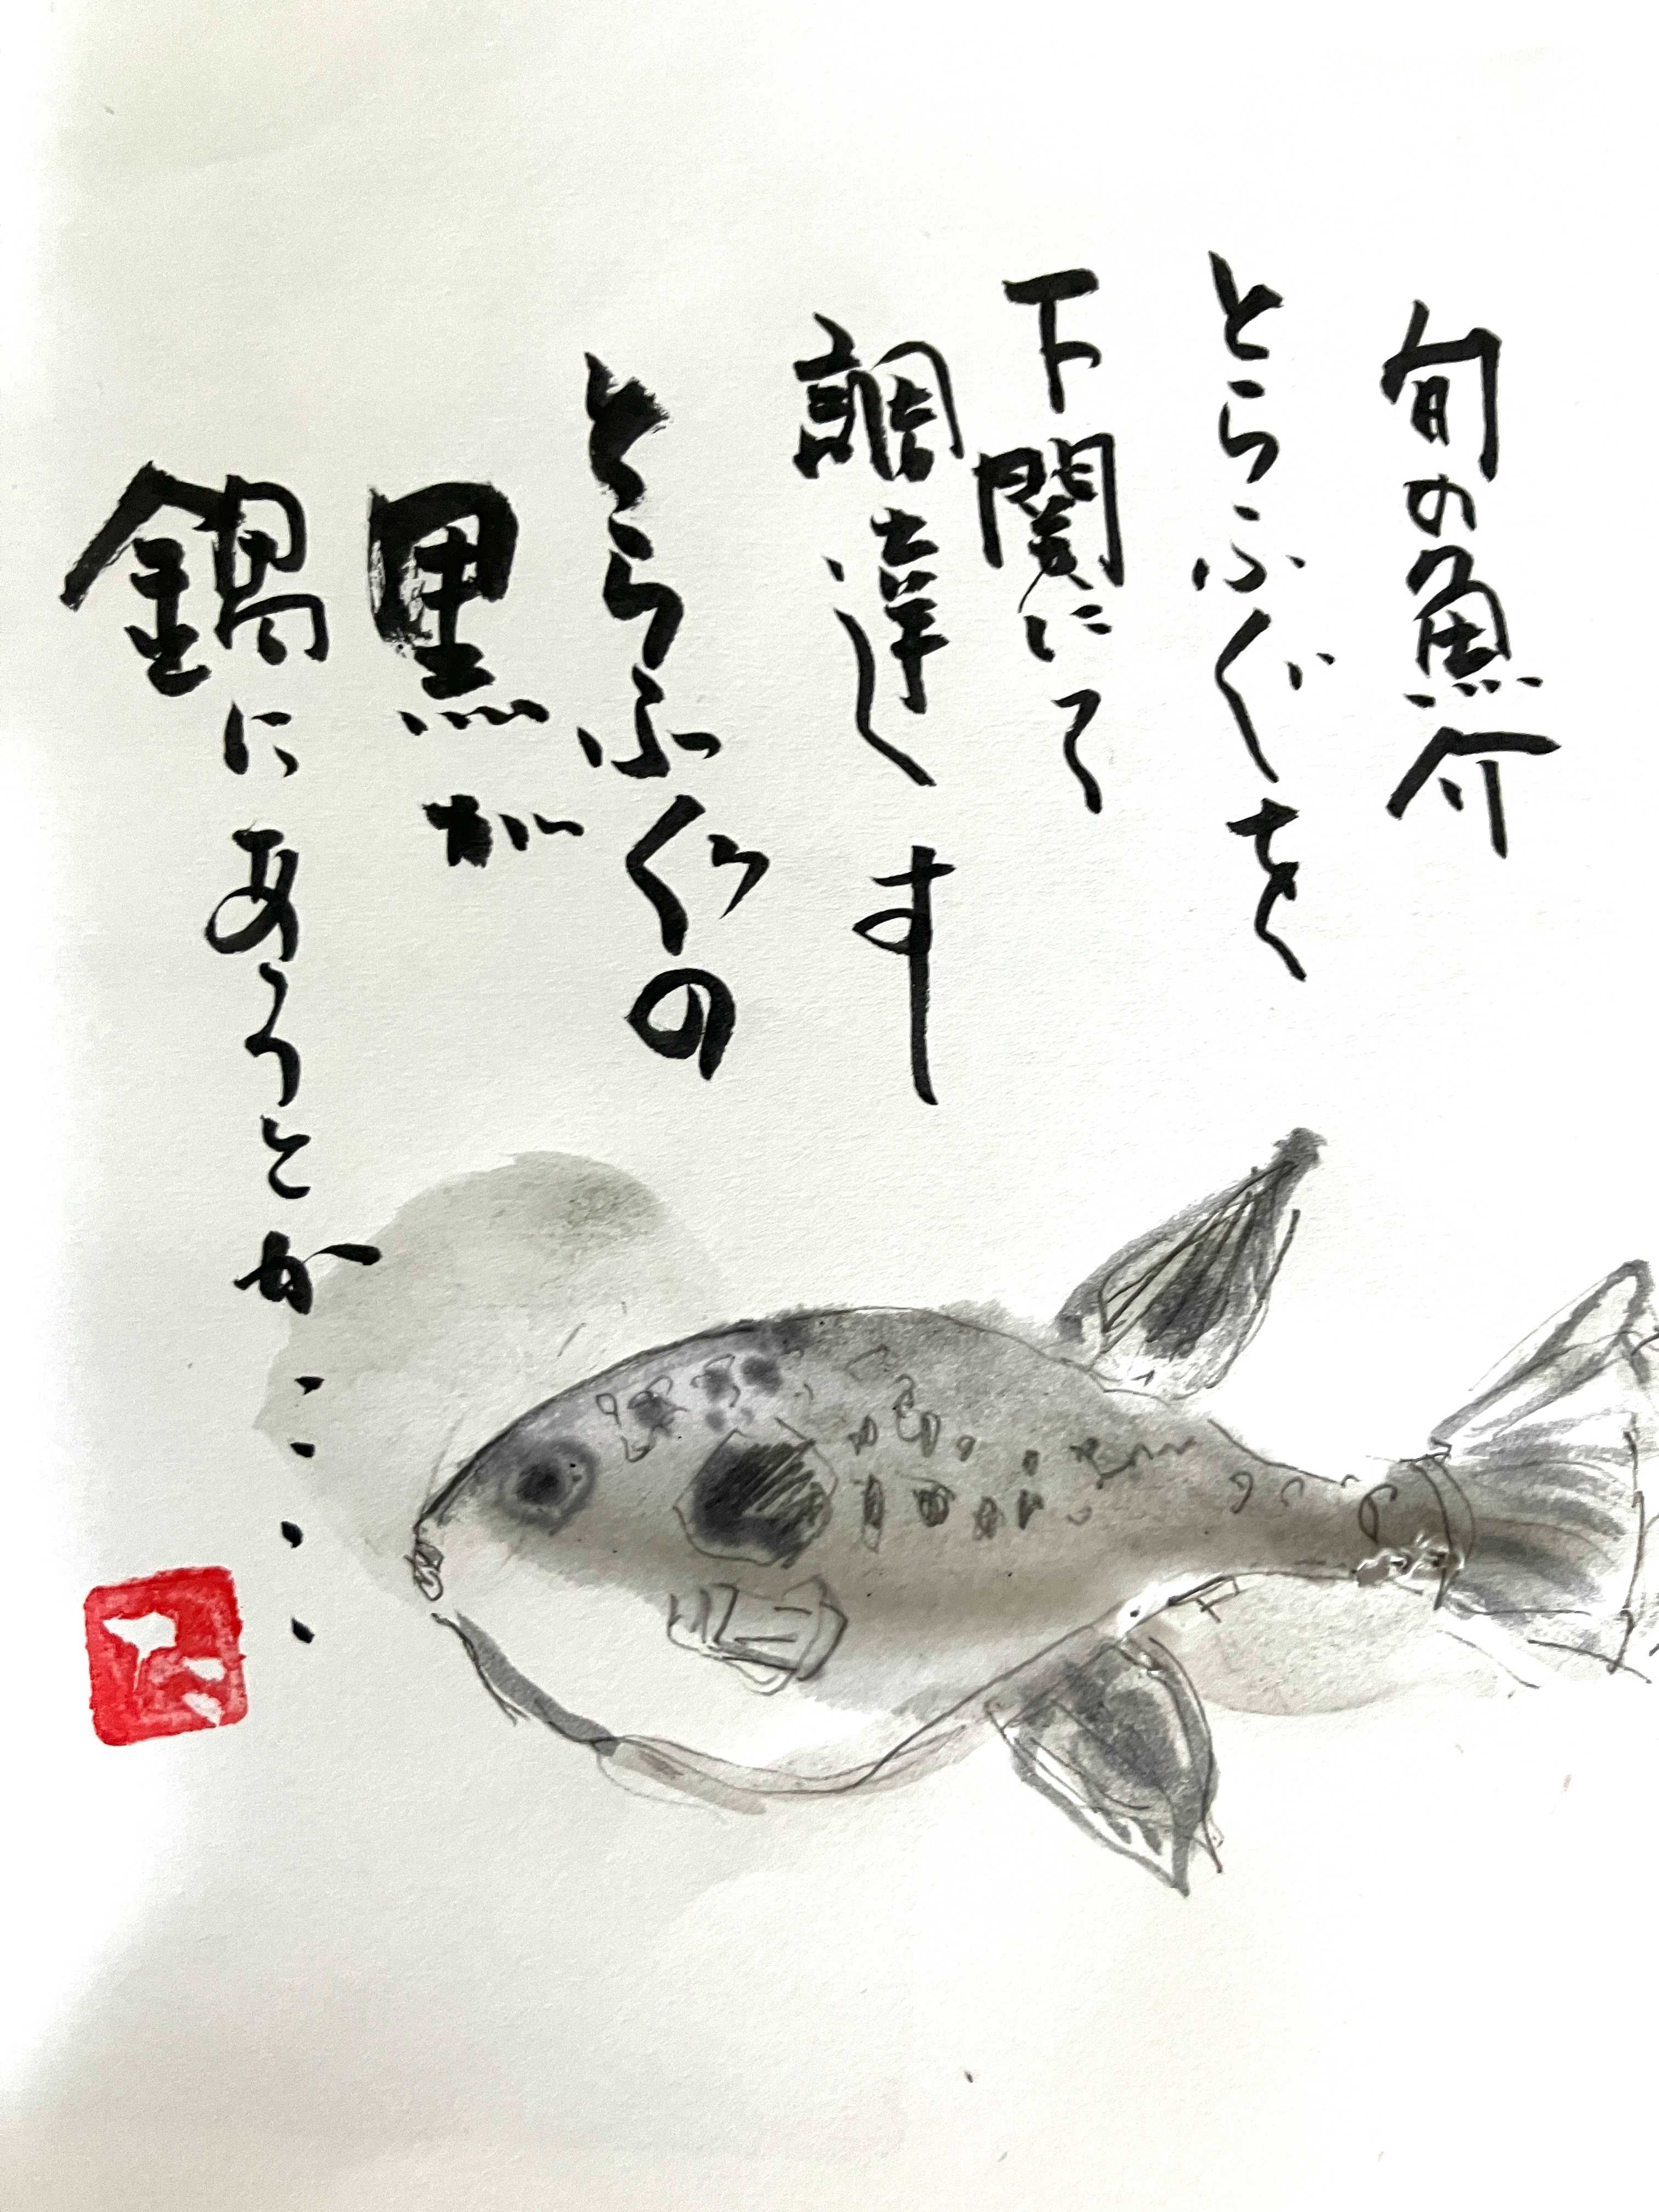 旬の魚介
とらふぐを
下関にて
調達します
とらふぐの
黒が
鍋にあうとか・・・・